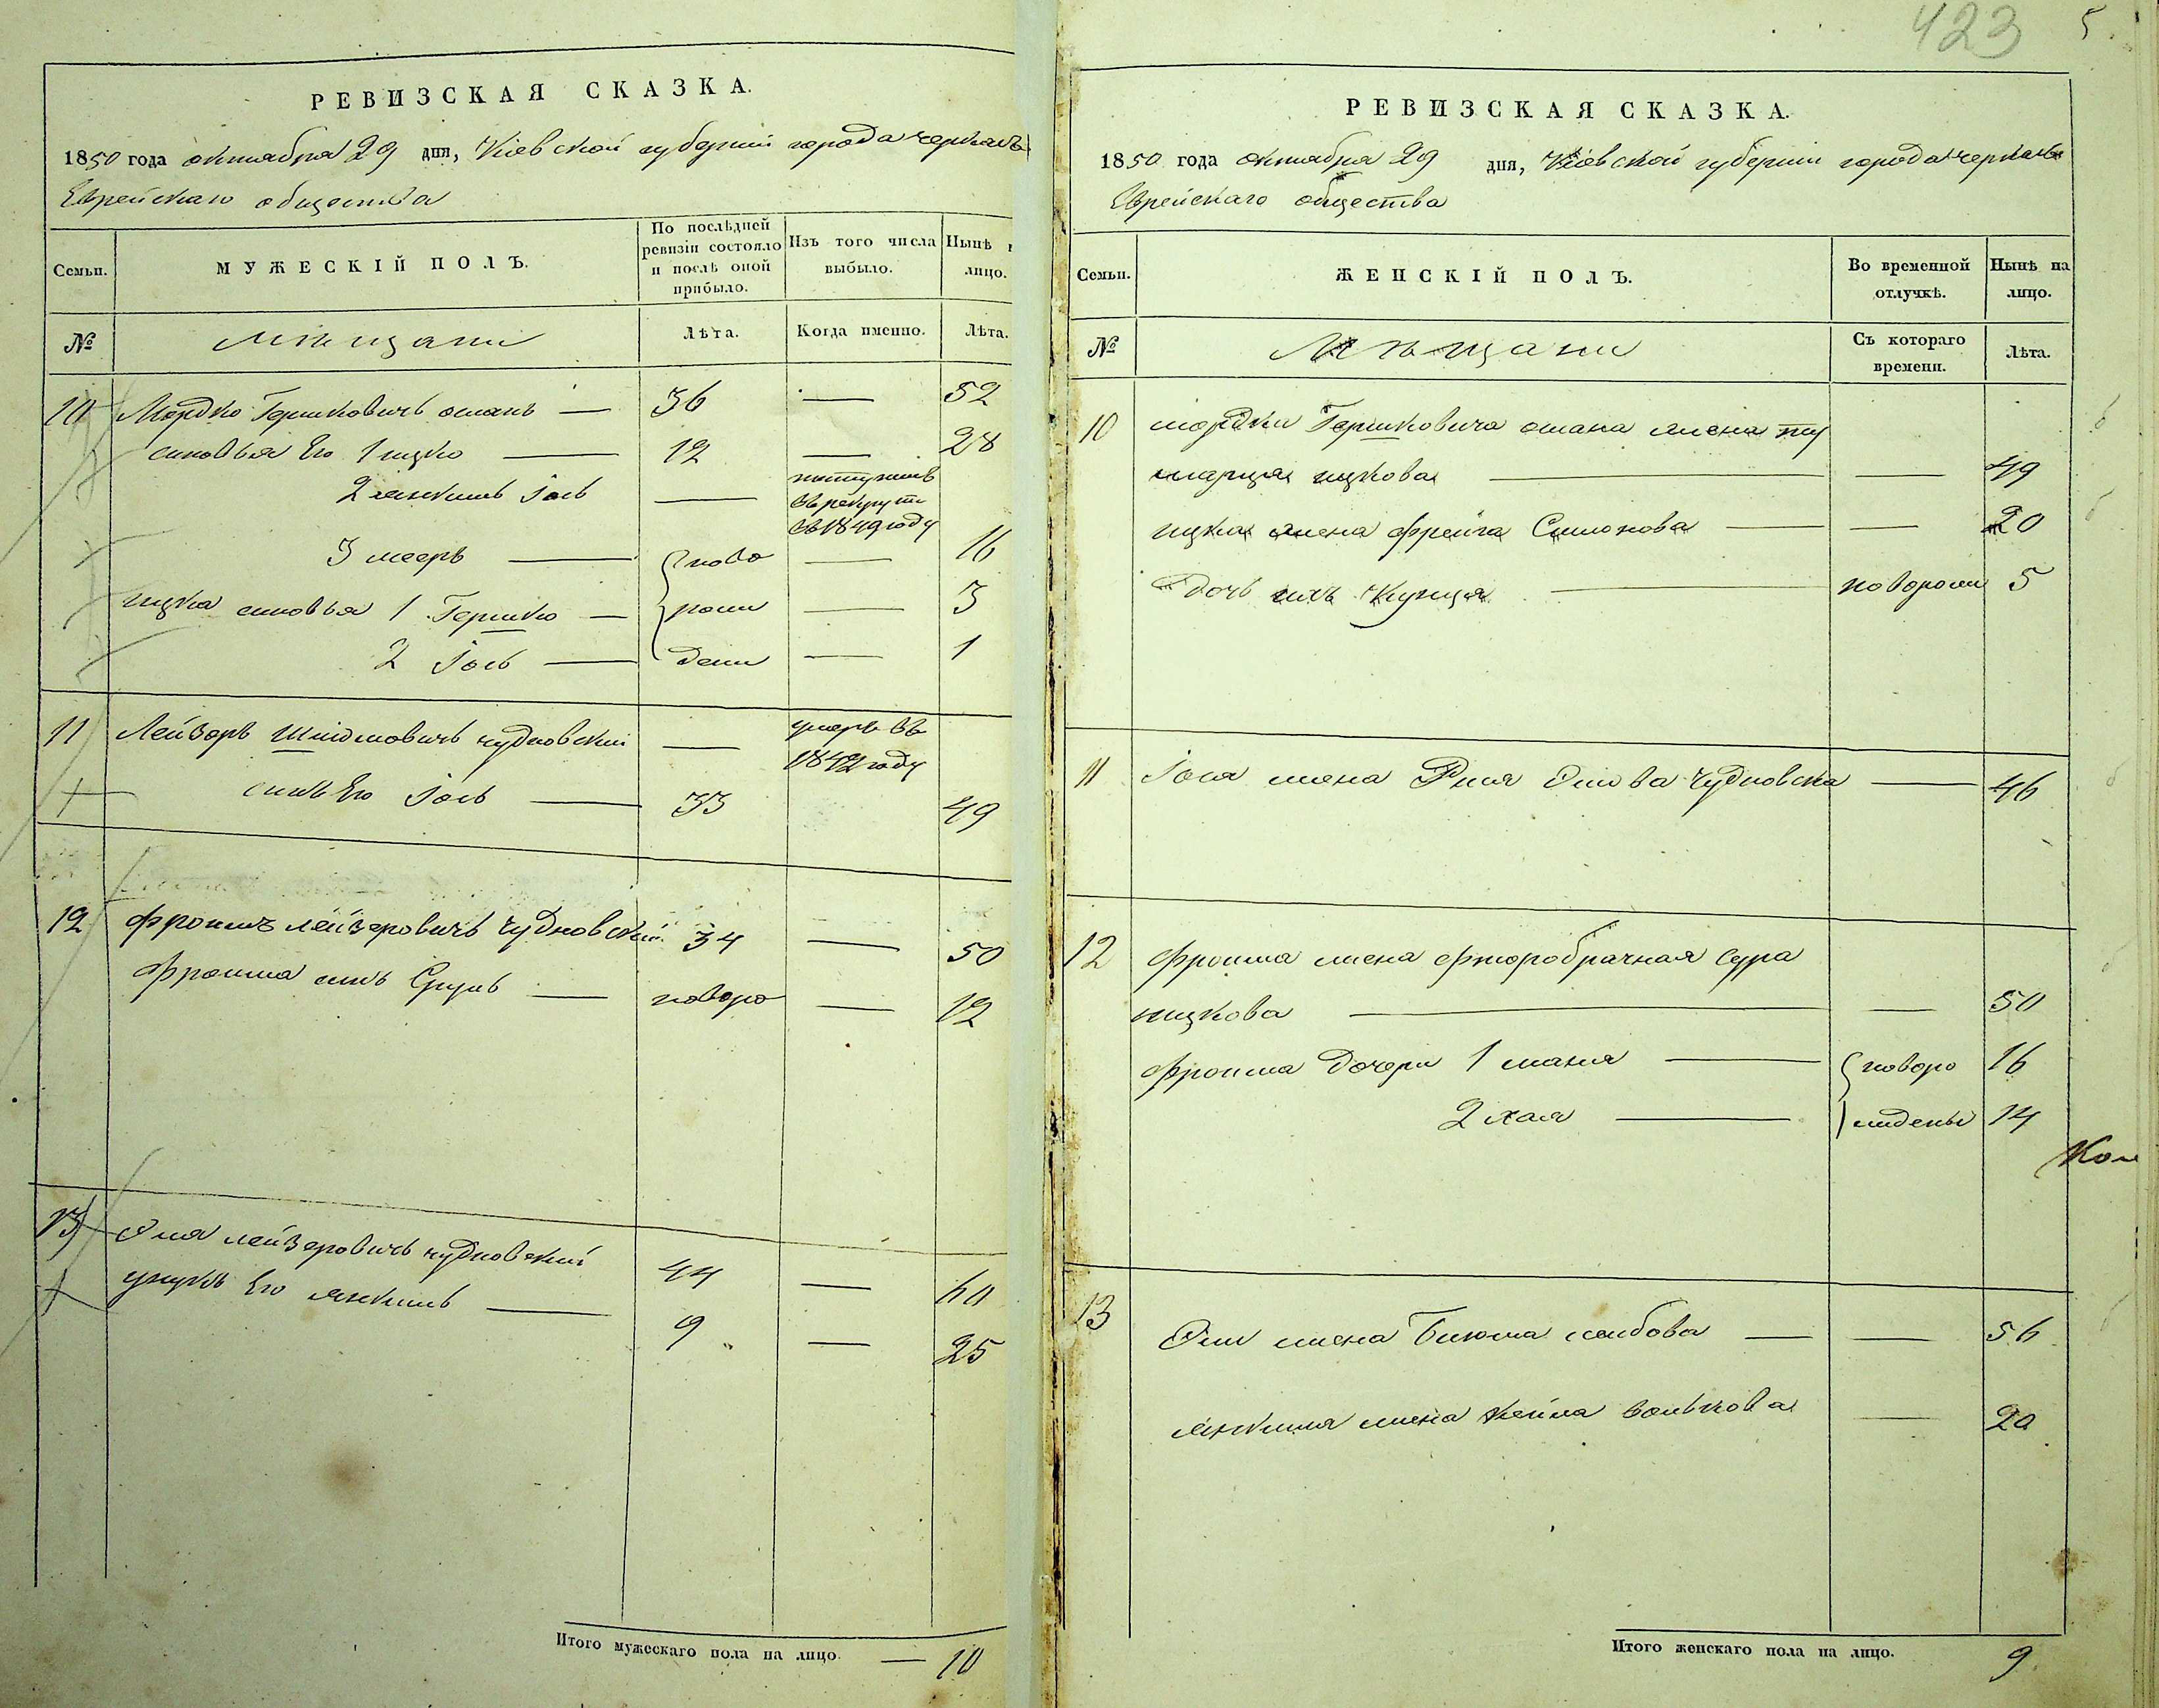 РЕВИЗСКАЯ СКАЗКА.
1850 года октября 29 дня, Кіевской губерніи города черкасъ
Еврейскаго общества
Семьи.
МУЖЕСКІЙ ПОЛЪ.
По послѣдней ревизіи состояло и послѣ оной прибыло.
Изъ того числа выбыло.
Нынѣ
лицо.
№
Мѣщани
Лѣта.
Когда именно.
Лѣта.
10 Мордко Гершковичъ — 36 — 52
синовья Его 1 ицко — 12 — 28
2 янкель Іось — поступилъ
въ рекруты
въ 1849 году
3 мееръ — ново — 16
ицка синовья 1 Гершко — рож — 3
2 Іось — дени — 1
11 Лейзоръ Шліомовичъ чудновскій — умеръ въ
1842 году
синъ Его Іось — 33 49
12 Фроимъ лейзеровичъ чудновскій 34 — 50
Фроима синъ Сруль — новоро — 12
13 лейзеровичъ чудновскій 44 — 60
унукъ Его янкель — 9 — 25
Итого мужескаго пола на лицо — 10
423 5
РЕВИЗСКАЯ СКАЗКА.
1850 года октября 29 дня, Кіевской губерніи города черкасъ
Еврейскаго общества
Семьи.
ЖЕНСКІЙ ПОЛЪ.
Во временной отлучкѣ.
Нынѣ на лицо.
№
Мѣщани
Съ котораго времени.
Лѣта.
10 мордки Гершковича жена
ицкова — — 49
ицка жена фрейга Симонова — — 20
дочь ихъ — новорож 5
11 Іося жена Чудновска — 46
12 Фроима жена фторобрачная сура
ицкова — — 50
Фроима дочери 1 маня — новоро 16
2 хая — жденые 14
13 жена лейбова — — 56
янкиля жена кейла волькова — 20
Итого женскаго пола на лицо. 9